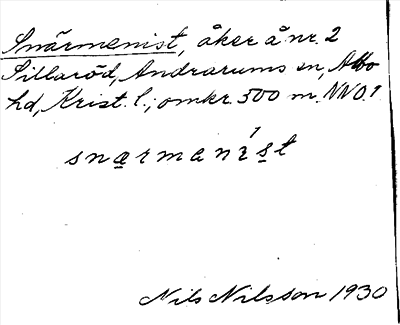 Snärmenist, åker å nr. 2
Sillaröd, Andrarums sn, Albo
hd, Krist. l.; omkr. 500 m. NNO.1.
snærmanist
Nils Nilsson 1930